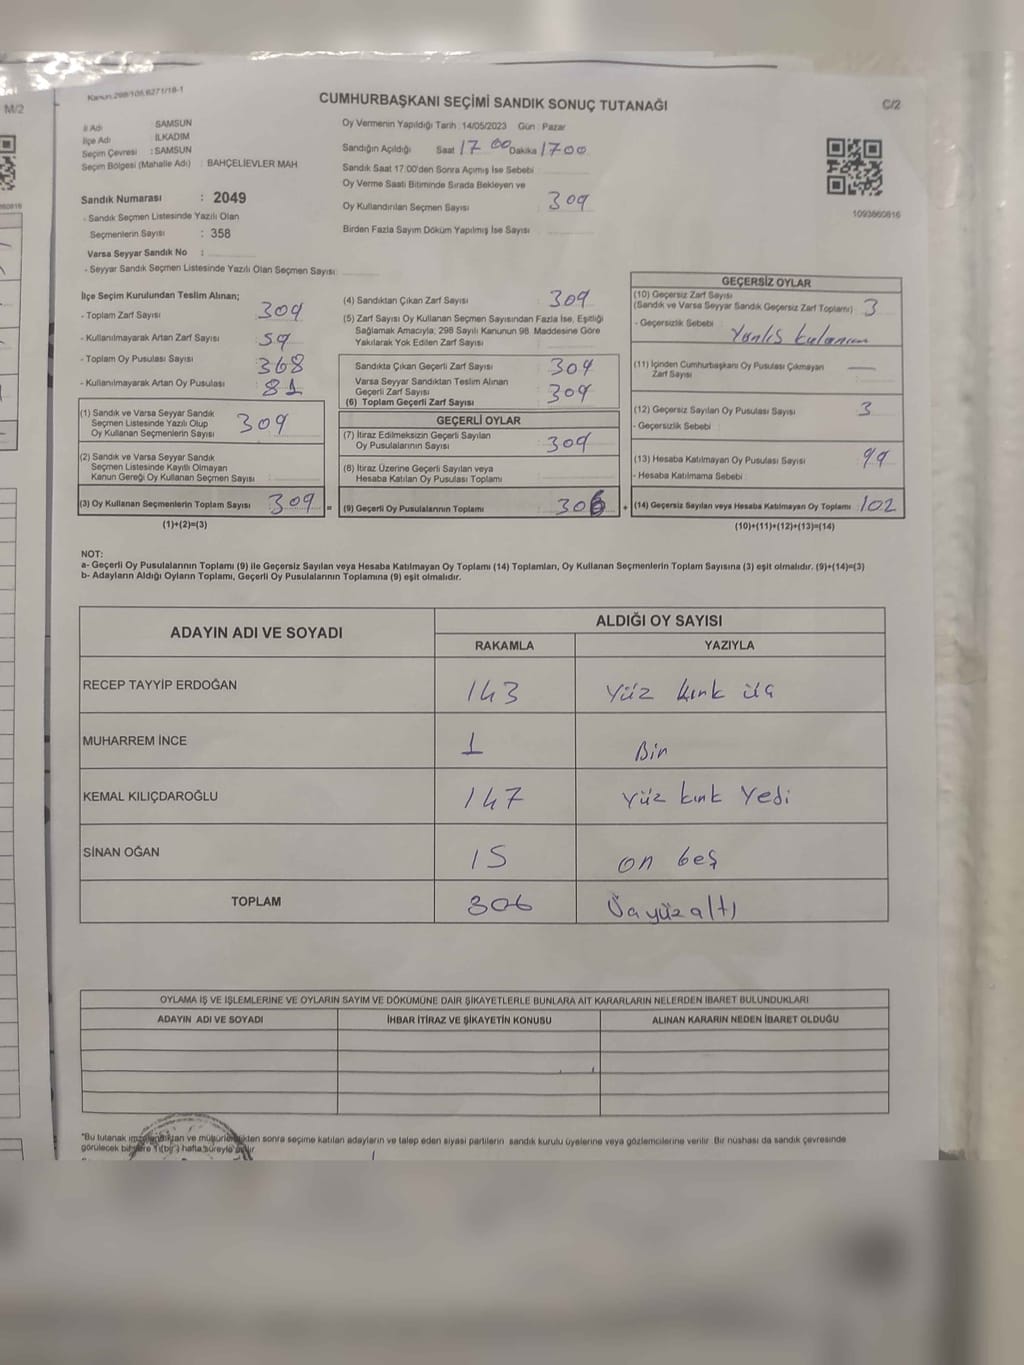 M/2
Kanun:298/105,6271/18-1
CUMHURBAŞKANI SEÇİMİ SANDIK SONUÇ TUTANAĞI
C/2
İl Adı SAMSUN
İlçe Adı İLKADIM
Seçim Çevresi : SAMSUN
Seçim Bölgesi (Mahalle Adı) : BAHÇELİEVLER MAH
Sandık Numarası : 2049
- Sandık Seçmen Listesinde Yazılı Olan
Seçmenlerin Sayısı : 358
Varsa Seyyar Sandık No :
- Seyyar Sandık Seçmen Listesinde Yazılı Olan Seçmen Sayısı:
Oy Vermenin Yapıldığı Tarih :14/05/2023 Gün : Pazar
Sandığın Açıldığı Saat 17 00 Dakika 1700
Sandık Saat 17:00'den Sonra Açımış İse Sebebi
Oy Verme Saati Bitiminde Sırada Bekleyen ve
Oy Kullandırılan Seçmen Sayısı : 309
Birden Fazla Sayım Döküm Yapılmış İse Sayısı
1093860816
İlçe Seçim Kurulundan Teslim Alınan;
- Toplam Zarf Sayısı : 309
- Kullanılmayarak Artan Zarf Sayısı : 59
- Toplam Oy Pusulası Sayısı : 368
- Kullanılmayarak Artan Oy Pusulası : 81
(1) Sandık ve Varsa Seyyar Sandık
Seçmen Listesinde Yazılı Olup
Oy Kullanan Seçmenlerin Sayısı : 309
(2) Sandık ve Varsa Seyyar Sandık
Seçmen Listesinde Kayıtlı Olmayan
Kanun Gereği Oy Kullanan Seçmen Sayısı :
(3) Oy Kullanan Seçmenlerin Toplam Sayısı : 309 =
(1)+(2)=(3)
(4) Sandıktan Çıkan Zarf Sayısı : 309
(5) Zarf Sayısı Oy Kullanan Seçmen Sayısından Fazla İse, Eşitliği
Sağlamak Amacıyla; 298 Sayılı Kanunun 98. Maddesine Göre
Yakılarak Yok Edilen Zarf Sayısı
Sandıkta Çıkan Geçerli Zarf Sayısı : 309
Varsa Seyyar Sandıktan Teslim Alınan
Geçerli Zarf Sayısı
(6) Toplam Geçerli Zarf Sayısı : 309
GEÇERLİ OYLAR
(7) İtiraz Edilmeksizin Geçerli Sayılan
Oy Pusulalarının Sayısı : 309
(8) İtiraz Üzerine Geçerli Sayılan veya
Hesaba Katılan Oy Pusulası Toplamı
(9) Geçerli Oy Pusulalarının Toplamı : 306 +
GEÇERSİZ OYLAR
(10) Geçersiz Zarf Sayısı
(Sandık ve Varsa Seyyar Sandık Geçersiz Zarf Toplamı) : 3
- Geçersizlik Sebebi : Yanlış kulanım
(11) İçinden Cumhurbaşkanı Oy Pusulası Çıkmayan
Zarf Sayısı : —
(12) Geçersiz Sayılan Oy Pusulası Sayısı : 3
- Geçersizlik Sebebi :
(13) Hesaba Katılmayan Oy Pusulası Sayısı : 99
- Hesaba Katılmama Sebebi :
(14) Geçersiz Sayılan veya Hesaba Katılmayan Oy Toplamı : 102
(10)+(11)+(12)+(13)=(14)
NOT:
a- Geçerli Oy Pusulalarının Toplamı (9) ile Geçersiz Sayılan veya Hesaba Katılmayan Oy Toplamı (14) Toplamları, Oy Kullanan Seçmenlerin Toplam Sayısına (3) eşit olmalıdır. (9)+(14)=(3)
b- Adayların Aldığı Oyların Toplamı, Geçerli Oy Pusulalarının Toplamına (9) eşit olmalıdır.
ADAYIN ADI VE SOYADI ALDIĞI OY SAYISI
RAKAMLA YAZIYLA
RECEP TAYYİP ERDOĞAN 143 Yüz kırk üç
MUHARREM İNCE 1 Bir
KEMAL KILIÇDAROĞLU 147 Yüz kırk Yedi
SİNAN OĞAN 15 on beş
TOPLAM 306 Üçyüzaltı
OYLAMA İŞ VE İŞLEMLERİNE VE OYLARIN SAYIM VE DÖKÜMÜNE DAİR ŞİKAYETLERLE BUNLARA AİT KARARLARIN NELERDEN İBARET BULUNDUKLARI
ADAYIN ADI VE SOYADI İHBAR İTİRAZ VE ŞİKAYETİN KONUSU ALINAN KARARIN NEDEN İBARET OLDUĞU
*Bu tutanak imzalandıktan ve mühürlendikten sonra seçime katılan adayların ve talep eden siyasi partilerin sandık kurulu üyelerine veya gözlemcilerine verilir. Bir nüshası da sandık çevresinde
görülecek bir yere 1(bir) hafta süreyle asılır